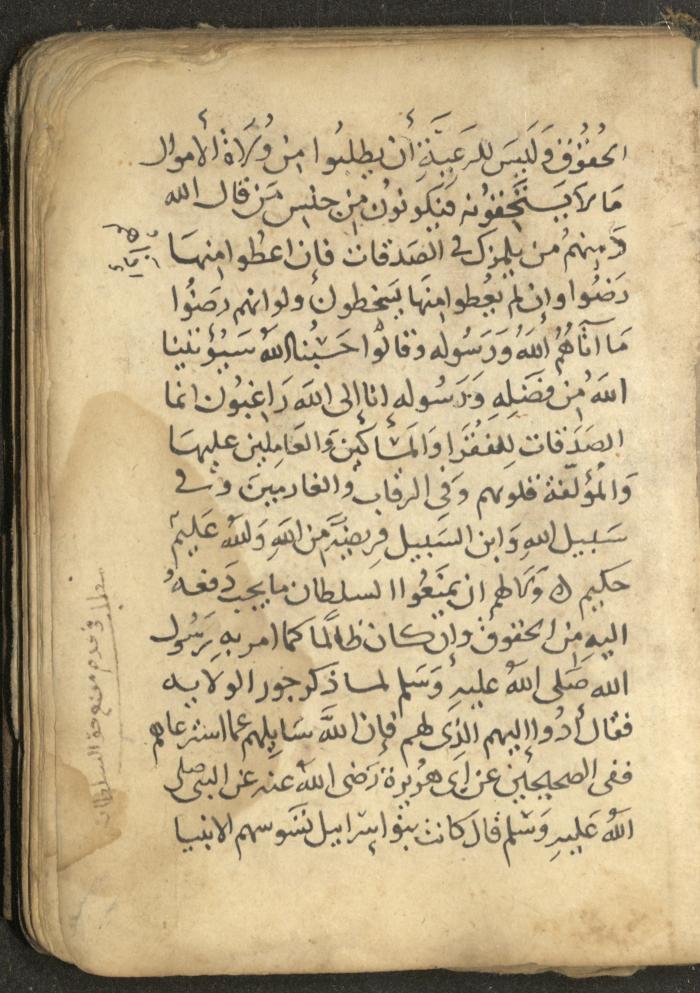 الحُقُوقِ وَلَيسَ للرَعيَّةِ أن يطلبُوا مِن وُلَاة الأموال
مَا لا يَستَحِقُونه فَيَكونُونَ مِن جنِس مَن قال الله
وَمِنهمُ من يلمزكَ في الصَدقات فإن اعطُوا مِنهَا
رَضُوا وإن لم يعُطوا مِنَها يَسَخطون ولو انهم رَضوُا
مَا آتَاهُمُ اَللهُ وَرَسُوله وقالوا حَسبُنا اللهُ سَيؤُتينا
اللهَ مُن فضَلِهِ وَرَسُوله انا إلى الله رَاغبُون انما
الصَدَقات لِلفُقَرا وَالمسَاكين وَالعَامِلين عليهَا
وَالمُؤلّفة قلوبهم وَفي الرقاب والغارمين وَفي
سَبيل اللهِ وَابن السَبيل فريضَةً مّن اللهِ وَاللهُ عَليمٌ
حكيمٌ ولا لهم ان يمنَعُوا السلطان ما يجب دَفعهُ
اليهِ مِن الحقوق وإن كان ظالمًا كما امر به رَسُول
الله صَلى اللهُ عليهِ وَسَلم لما ذكر جور الولاه
فقال أدُوا إليهم الذِي لهم فإن اللهَ سَايلهم عما استرعاهم
ففي الصحيحَين عن اَبي هرُيرة رَضى اللهُ عنه عن النبي صلى
اللهُ عَليهِ وَسَلم قال كانت بنوُ إسرَاييل تسَوسهم الانبيا
مطلب في عدم منع حق السلطان